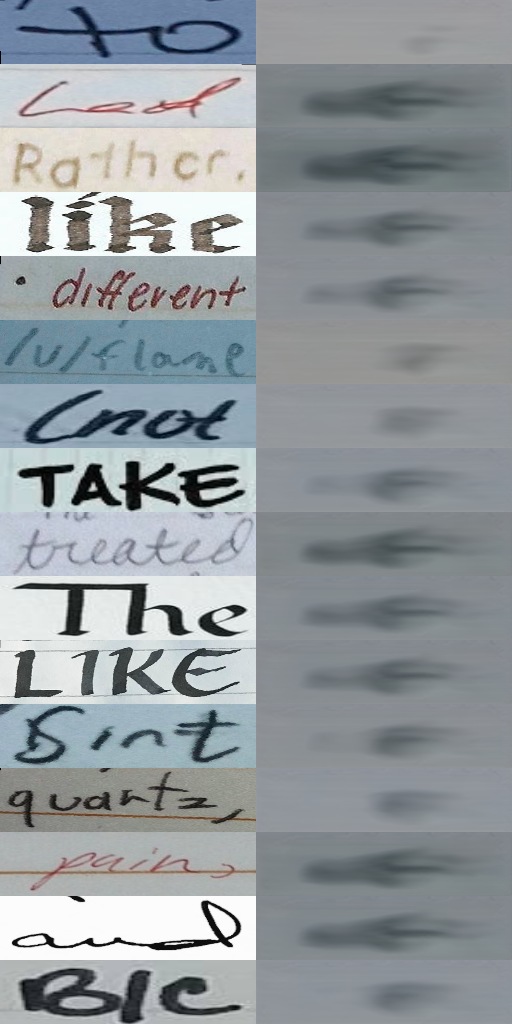 to
Rather.
like
• different
/u/flame
(not
TAKE
treated
The
LIKE
Sint
quartz,
pain,
and
B/c